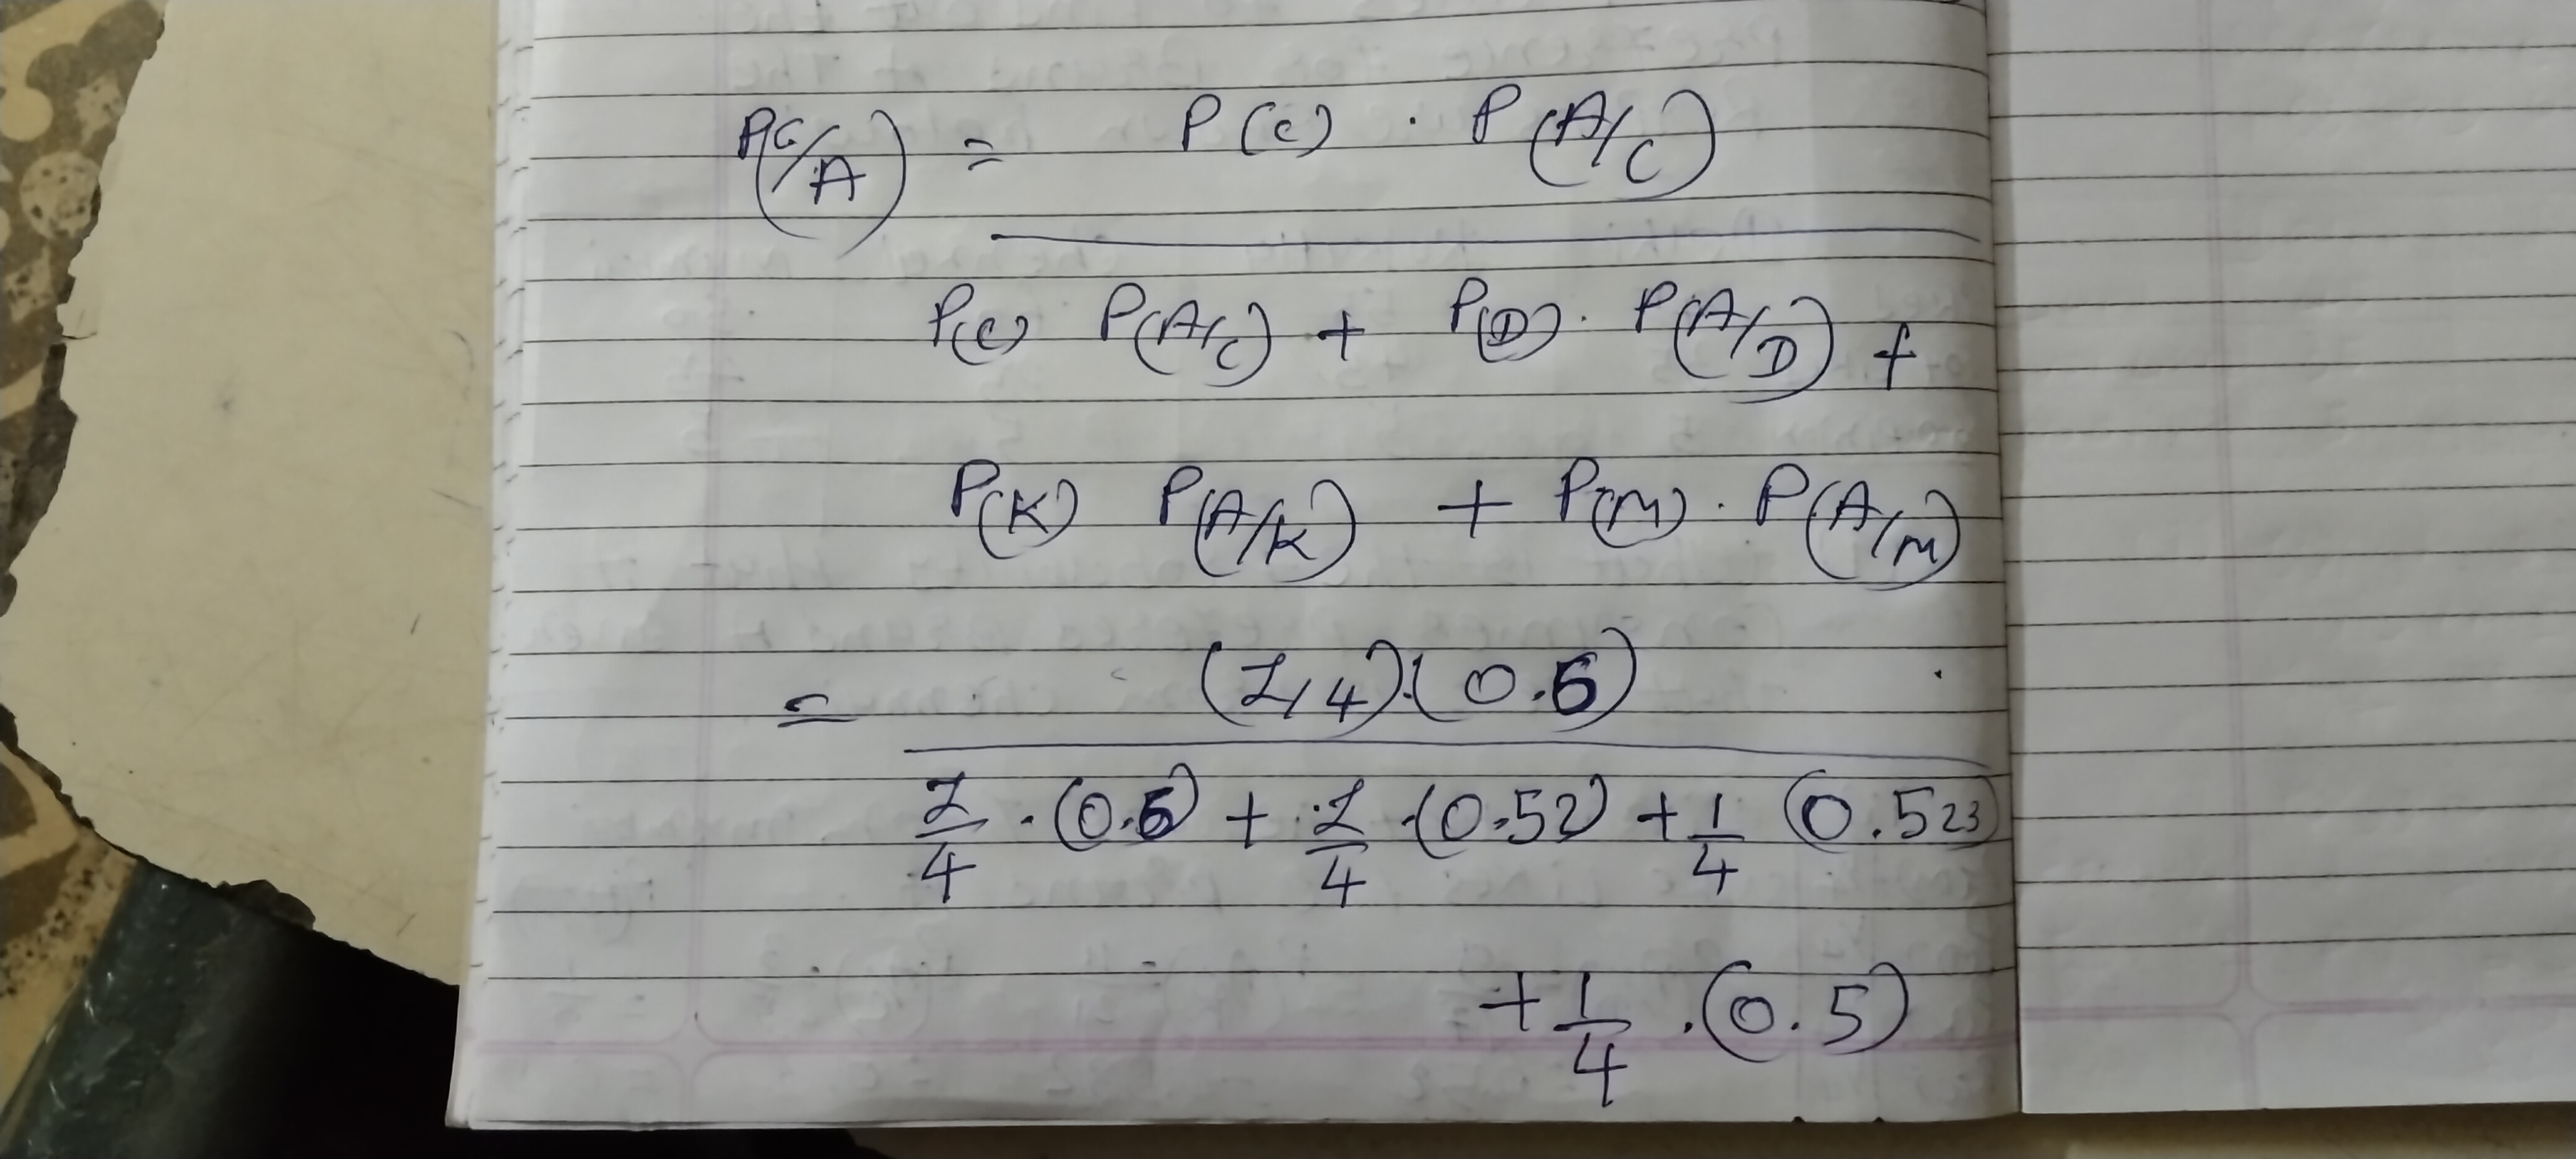 P(C/A) = P(C) . P(A/C)
P(C) P(A/C) + P(D) . P(A/D) +
P(K) P(A/K) + P(M) . P(A/M)
= (1/4).(0.6)
1/4 . (0.6) + 1/4 .(0.52) + 1/4 (0.523)
+ 1/4 .(0.5)